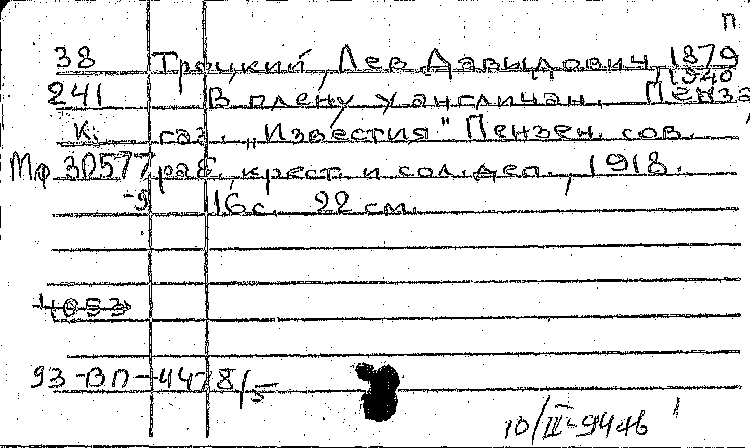 П
38 Троцкий, Лев Давыдович, 1879
-1940
241 В плену у англичан. Пенза,
К. газ. „Известия" Пензен. сов.
Мф 30577 раб., крест. и сол. деп., 1918.
-9 16 с. 22 см.
4053
93-ВП-4478/5
10/III-94